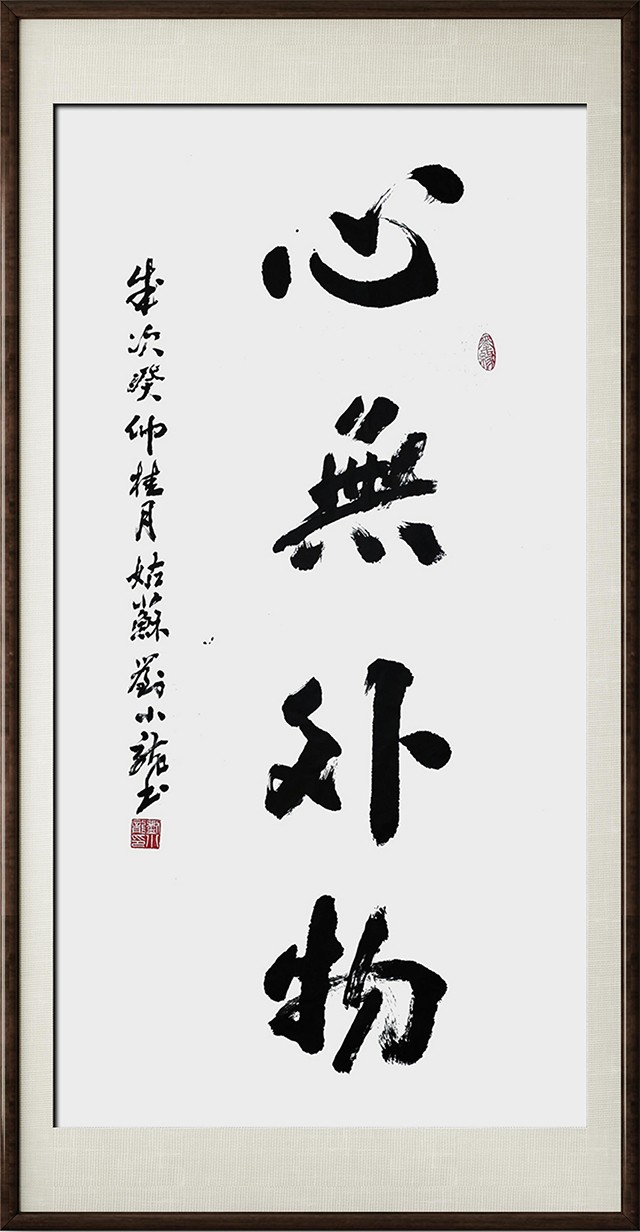 心無外物
歲次癸卯桂月姑蘇劉小龍書